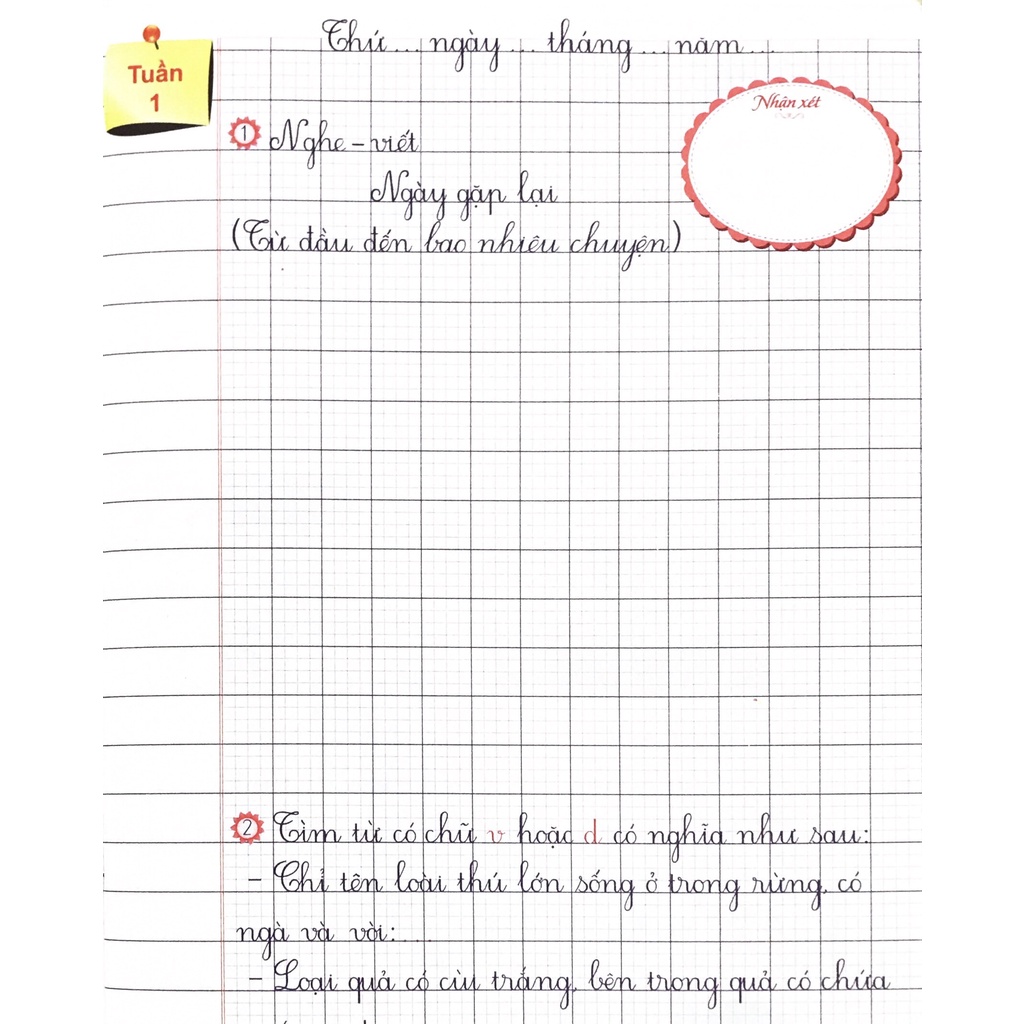 Thứ... ngày... tháng... năm...
Tuần
1
Nhận xét
1 Nghe - viết
Ngày gặp lại
(Từ đầu đến bao nhiêu chuyện)
2 Tìm từ có chữ v hoặc d có nghĩa như sau:
- Chỉ tên loài thú lớn sống ở trong rừng, có
ngà và vòi:...
- Loại quả có cùi trắng, bên trong quả có chứa